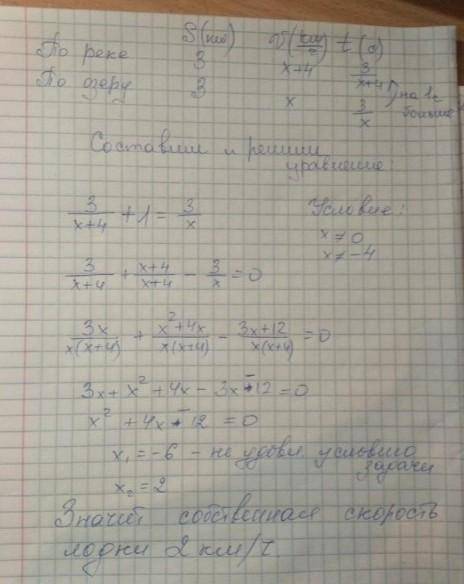 S (км) V (км/ч) t (ч)
По реке 3 x+4 3/(x+4)
По озеру 3 x 3/x на 1 ч больше
Составим и решим
уравнение:
3/(x+4) + 1 = 3/x Условие:
x ≠ 0
x ≠ -4
3/(x+4) + (x+4)/(x+4) - 3/x = 0
3x/(x(x+4)) + (x²+4x)/(x(x+4)) - (3x+12)/(x(x+4)) = 0
3x + x² + 4x - 3x - 12 = 0
x² + 4x - 12 = 0
x₁ = -6 - не удовл. условию
задачи
x₂ = 2
Значит собственная скорость
лодки 2 км/ч.